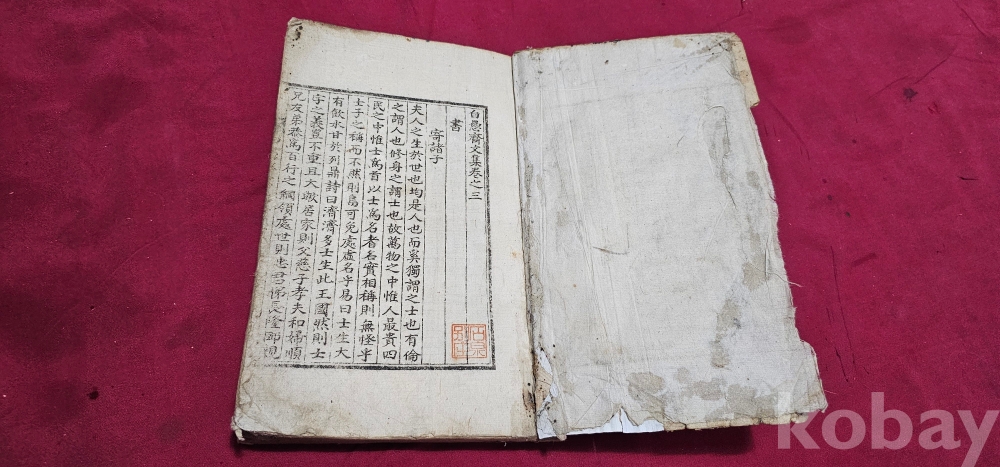 白愚齋文集卷之三
書
寄諸子
夫人之生於世也均是人也而奚獨謂之士也有倫
之謂人也修身之謂士也故萬物之中惟人最貴四
民之中惟士爲首以士爲名者名實相稱則無怪乎
士子之稱而不然則烏可免處虛名乎易曰士生大
有飮水甘於列鼎詩曰濟濟多士生此王國然則士
字之義豈不重且大歟居家則父慈子孝夫和婦順
兄友弟恭爲百行之綱領處世則忠君悌長隆師親
kobay